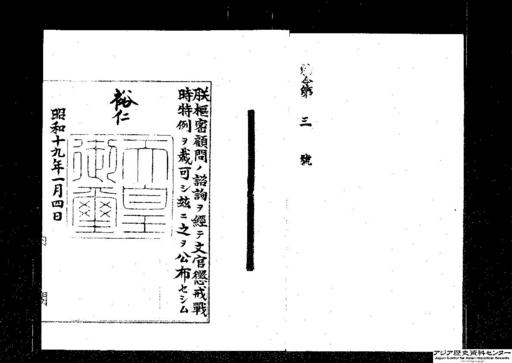 勅令第三號
朕樞密顧問ノ諮詢ヲ經テ文官懲戒戰
時特例ヲ裁可シ玆ニ之ヲ公布セシム
裕仁
天皇御璽
昭和十九年一月四日
内閣
アジア歴史資料センター
Japan Center for Asian Historical Records